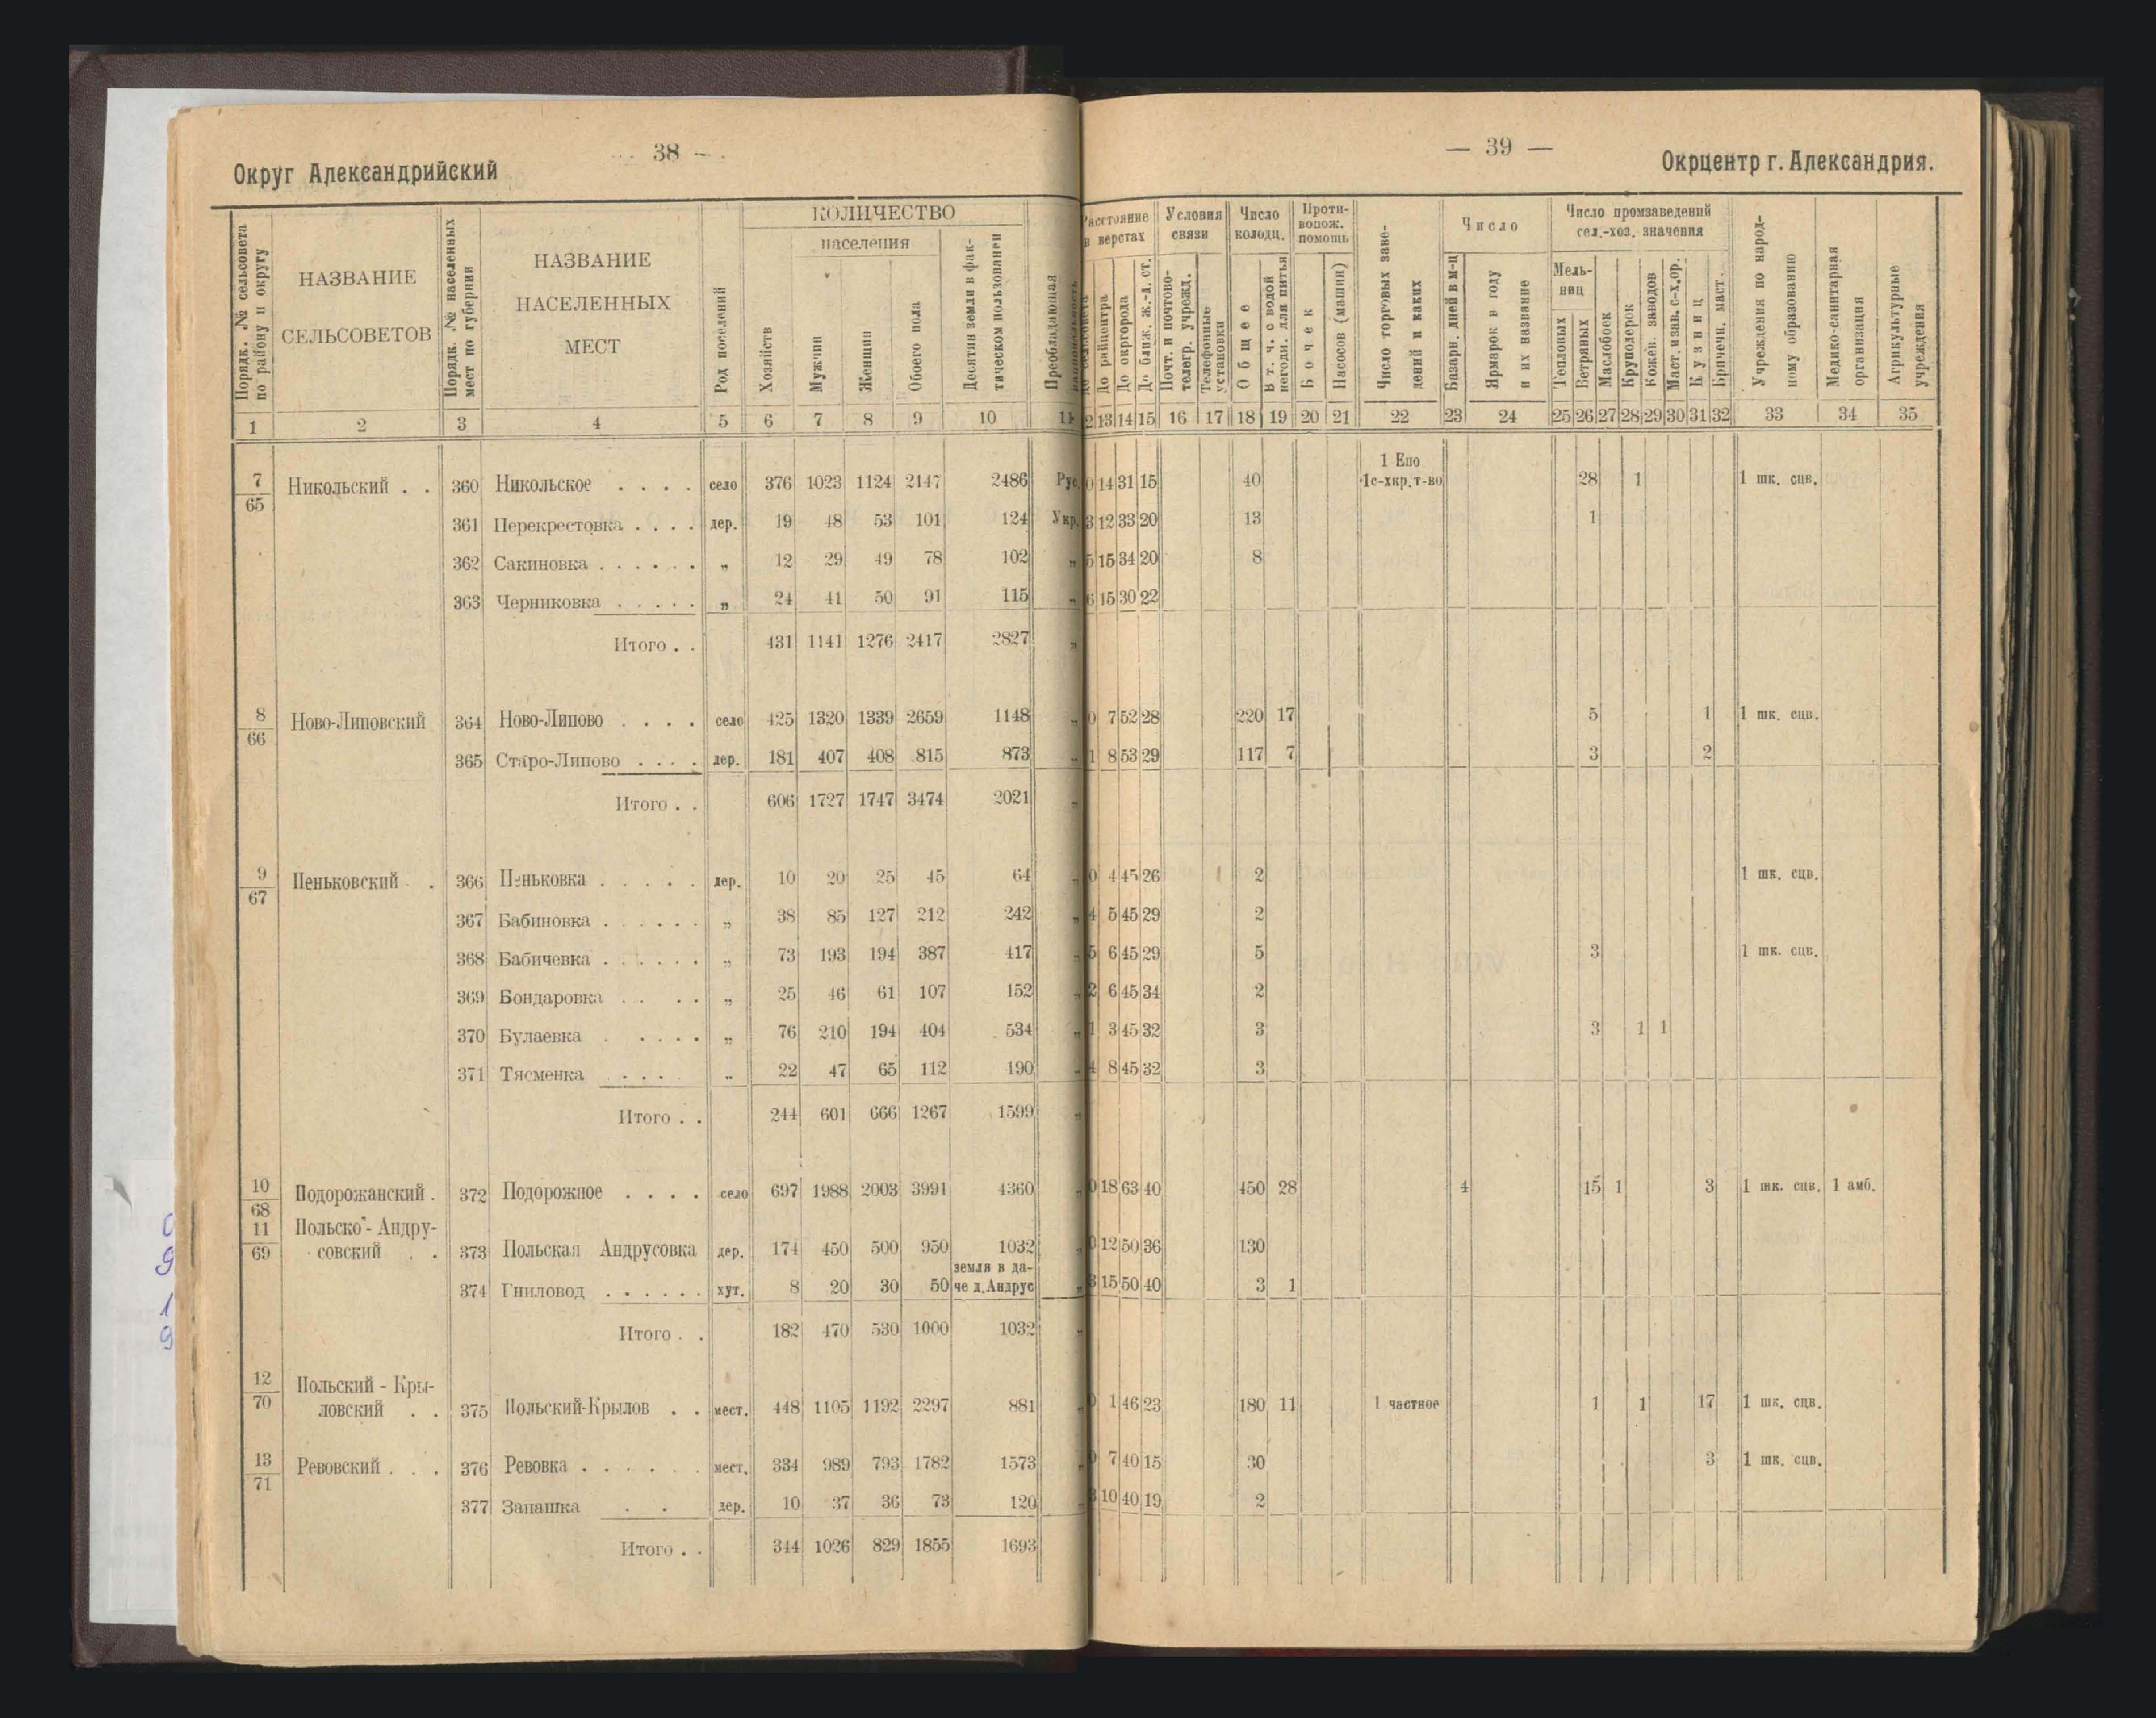 38 -
Округ Александрийский
Порядк. № сельсовета по району и округу
НАЗВАНИЕ СЕЛЬСОВЕТОВ
Порядк. № населенных мест по губернии
НАЗВАНИЕ НАСЕЛЕННЫХ МЕСТ
Род поселений
КОЛИЧЕСТВО
Хозяйств
населения
Мужчин
Женщин
Обоего пола
Десятин земли в фактическом пользовании
Преобладающая
1 2 3 4 5 6 7 8 9 10 11
7/65 Никольский . . 360 Никольское . . . . село 376 1023 1124 2147 2486 Рус.
361 Перекрестовка . . . . дер. 19 48 53 101 124 Укр.
362 Сакиновка . . . . . . „ 12 29 49 78 102 „
363 Черниковка . . . . . „ 24 41 50 91 115 „
Итого . . 431 1141 1276 2417 2827 „
8/66 Ново-Липовский 364 Ново-Липово . . . . село 425 1320 1339 2659 1148 „
365 Старо-Липово . . . . дер. 181 407 408 815 873 „
Итого . . 606 1727 1747 3474 2021 „
9/67 Пеньковский . . 366 Пеньковка . . . . . дер. 10 20 25 45 64 „
367 Бабиновка . . . . . . „ 38 85 127 212 242 „
368 Бабичевка . . . . . . „ 73 193 194 387 417 „
369 Бондаровка . . . . „ 25 46 61 107 152 „
370 Булаевка . . . . . „ 76 210 194 404 534 „
371 Тясменка . . . . „ 22 47 65 112 190 „
Итого . . 244 601 666 1267 1599 „
10/68 Подорожанский . 372 Подорожное . . . . село 697 1988 2003 3991 4360 „
11/69 Польско - Андру-
совский . . 373 Польская Андрусовка дер. 174 450 500 950 1032 „
374 Гниловод . . . . . . хут. 8 20 30 50 земля в да-
че д. Андрус „
Итого . . 182 470 530 1000 1032 „
12/70 Польский - Кры-
ловский . . 375 Польский-Крылов . . мест. 448 1105 1192 2297 881 „
13/71 Ревовский . . . 376 Ревовка . . . . . . мест. 334 989 793 1782 1573 „
377 Запашка . . дер. 10 37 36 73 120 „
Итого . . 344 1026 829 1855 1693
— 39 —
Окрцентр г. Александрия.
Расстояние в верстах
До райцентра
До окргорода
До ближ. ж.-д. ст.
Условия связи
Почт. и почтово-телегр. учрежд.
Телефонные установки
Число колодц.
Общее
В т. ч. с водой негодн. для питья
Противопож. помощь
Бочек
Насосов (машин)
Число торговых заведений и каких
Число
Базарн. дней в м-ц
Ярмарок в году и их название
Число промзаведений сел.-хоз. значения
Мельниц
Тепловых
Ветряных
Маслобоек
Круподерок
Кожев. заводов
Маст. и зав. с-х.ор.
Кузниц
Кирпичн. маст.
Учреждения по народному образованию
Медико-санитарная организация
Агрикультурные учреждения
2 13 14 15 16 17 18 19 20 21 22 23 24 25 26 27 28 29 30 31 32 33 34 35
0 14 31 15 40 1 Епо
1с-хкр.т-во 28 1 1 шк. сцв.
3 12 33 20 13 1
5 15 34 20 8
6 15 30 22
0 7 52 28 220 17 5 1 1 шк. сцв.
1 8 53 29 117 7 3 2
0 4 45 26 2 1 шк. сцв.
4 5 45 29 2
5 6 45 29 5 3 1 шк. сцв.
2 6 45 34 2
1 3 45 32 3 3 1 1
4 8 45 32 3
0 18 63 40 450 28 4 15 1 3 1 шк. сцв. 1 амб.
0 12 50 36 130
3 15 50 40 3 1
0 1 46 23 180 11 1 частное 1 1 17 1 шк. сцв.
0 7 40 15 30 3 1 шк. сцв.
3 10 40 19 2